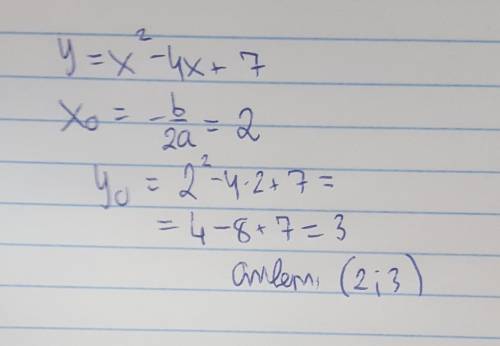 y = x² - 4x + 7
x₀ = -b/2a = 2
y₀ = 2² - 4·2 + 7 =
= 4 - 8 + 7 = 3
Ответ: (2; 3)